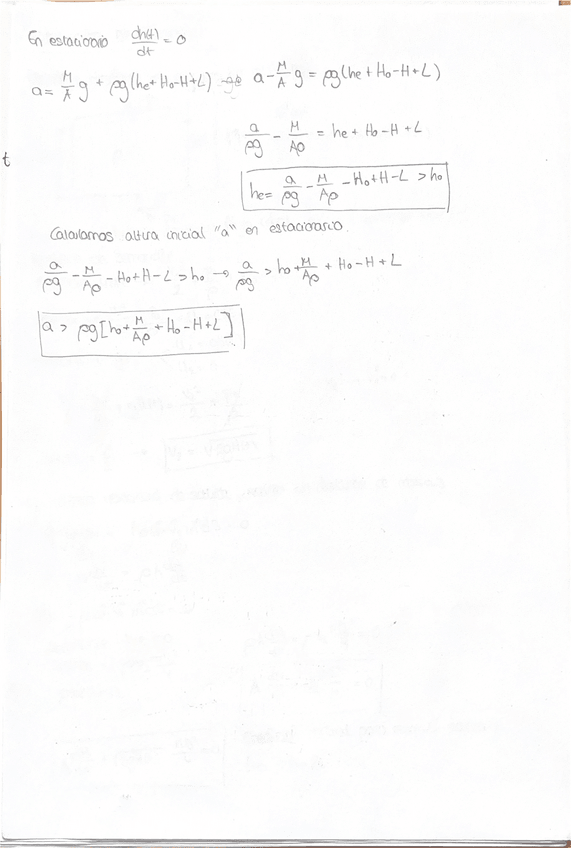 En estacionario dh(t)/dt = 0
a = M/A g + ρg(he + Ho - H + L) a - M/A g = ρg(he + Ho - H + L)
a/ρg - M/Aρ = he + Ho - H + L
t
he = a/ρg - M/Aρ - Ho + H - L > ho
Calculamos altura inicial "a" en estacionario.
a/ρg - M/Aρ - Ho + H - L > ho → a/ρg > ho + M/Aρ + Ho - H + L
a > ρg[ho + M/Aρ + Ho - H + L]